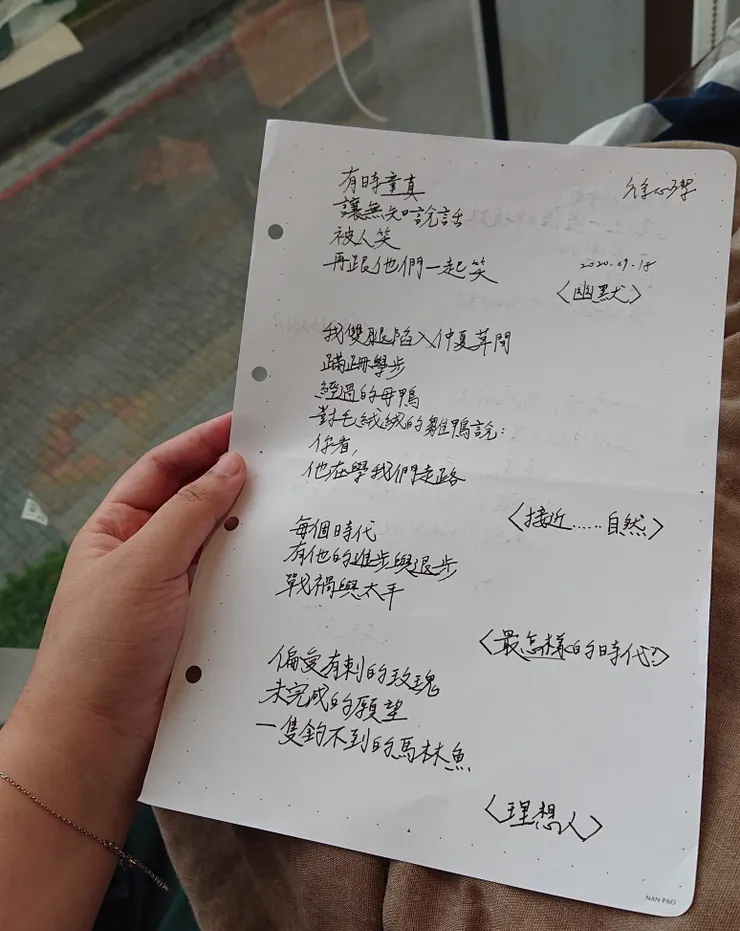 有時童真
讓無知說話
被人笑
再跟他們一起笑
2020.09.18
〈幽默〉
我雙腿陷入仲夏草間
蹣跚學步
經過的母鴨
對毛絨絨的雛鴨說：
你看，
他在學我們走路
〈接近……自然〉
每個時代
有他的進步與退步
戰禍與太平
〈最怎樣的時代?〉
偏愛有刺的玫瑰
未完成的願望
一隻釣不到的馬林魚
〈理想人〉
NAN PAO